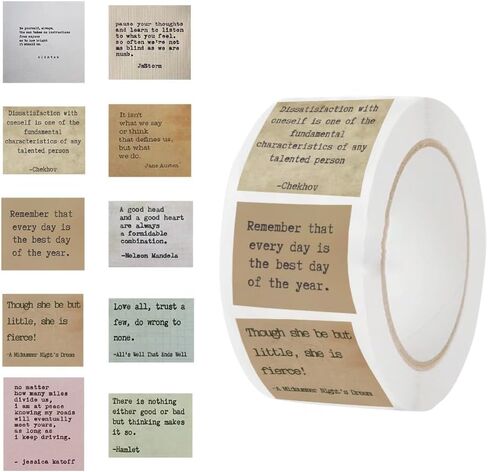 be yourself, always.
pause your thoughts
and learn to listen
to what you feel.
so often we're not
as blind as we are
numb.
JmStorm
Dissatisfaction with
oneself is one of the
fundamental
characteristics of any
talented person
-Chekhov
It isn't
what we say
or think
that defines us,
but what
we do.
Jane Austen
Remember that
every day is
the best day
of the year.
A good head
and a good heart
are always
a formidable
combination.
-Nelson Mandela
Though she be but
little, she is
fierce!
-A Midsummer Night's Dream
Love all, trust a
few, do wrong to
none.
-All's Well That Ends Well
no matter
how many miles
divide us,
i am at peace
knowing my roads
will eventually
meet yours,
as long as
i keep driving.
- jessica katoff
There is nothing
either good or bad
but thinking makes
it so.
-Hamlet
Dissatisfaction with
oneself is one of the
fundamental
characteristics of any
talented person
-Chekhov
Remember that
every day is
the best day
of the year.
Though she be but
little, she is
fierce!
-A Midsummer Night's Dream